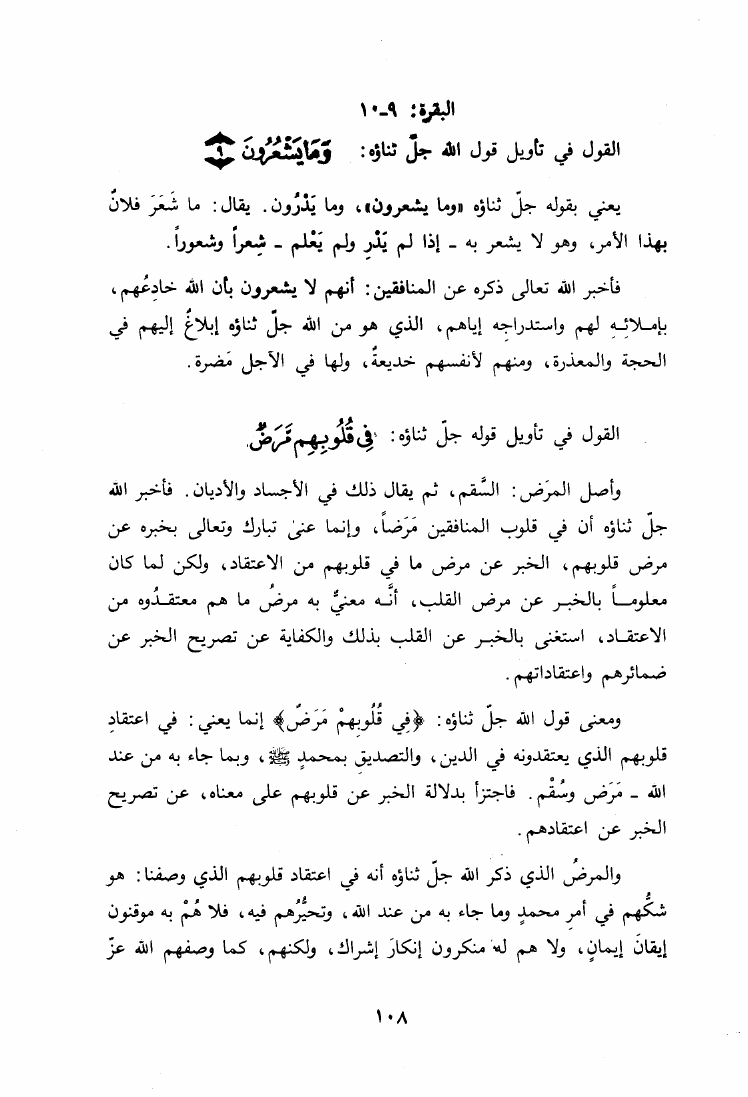 البقرة: ٩-١٠
القول في تأويل قول الله جلّ ثناؤه: وَمَا يَشْعُرُونَ ٩
يعني بقوله جلّ ثناؤه «وما يشعرون»، وما يَدْرُون. يقال: ما شَعَرَ فلانٌ
بهذا الأمر، وهو لا يشعر به - إذا لم يَدْرِ ولم يَعْلم - شِعراً وشعوراً.
فأخبر الله تعالى ذكره عن المنافقين: أنهم لا يشعرون بأن الله خادِعُهم،
بإملائِه لهم واستدراجِه إياهم، الذي هو من الله جلّ ثناؤه إبلاغٌ إليهم في
الحجة والمعذرة، ومنهم لأنفسهم خديعةٌ، ولها في الآجل مَضرة.
القول في تأويل قوله جلّ ثناؤه: فِى قُلُوبِهِم مَّرَضٌ
وأصل المرَض: السَّقم، ثم يقال ذلك في الأجساد والأديان. فأخبر الله
جلّ ثناؤه أن في قلوب المنافقين مَرَضاً، وإنما عنىٰ تبارك وتعالى بخبره عن
مرض قلوبهم، الخبر عن مرض ما في قلوبهم من الاعتقاد، ولكن لما كان
معلومـاً بالخبـر عن مرض القلب، أنَّـه معنيٌّ به مرضُ ما هم معتقـدُوه من
الاعتقـاد، استغنى بالخبـر عن القلب بذلك والكفاية عن تصريح الخبر عن
ضمائرهم واعتقاداتهم.
ومعنى قول الله جلّ ثناؤه: ﴿فِي قُلُوبِهِمْ مَرَضٌ﴾ إنما يعني: في اعتقادِ
قلوبهم الذي يعتقدونه في الدين، والتصديق بمحمدٍ ﷺ، وبما جاء به من عند
الله - مَرَض وسُقْم. فاجتزأ بدلالة الخبر عن قلوبهم على معناه، عن تصريح
الخبر عن اعتقادهم.
والمرضُ الذي ذكر الله جلّ ثناؤه أنه في اعتقاد قلوبهم الذي وصفنا: هو
شكُّهم في أمرِ محمدٍ وما جاء به من عند الله، وتحيُّرُهم فيه، فلا هُمْ به موقنون
إيقانَ إيمانٍ، ولا هم له منكرون إنكارَ إشراك، ولكنهم، كما وصفهم الله عزّ
١٠٨